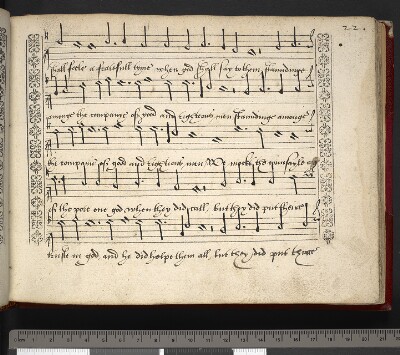 22.
shall feele a fearfull tyme when god shall say to them standinge
amonge the companie of good and righteous men standinge amonge
the companie of good and righteous men Ye mockt the
of the pore one god, when they did call, but they did put their
truste in god, and he did helpe them all, but they did put their